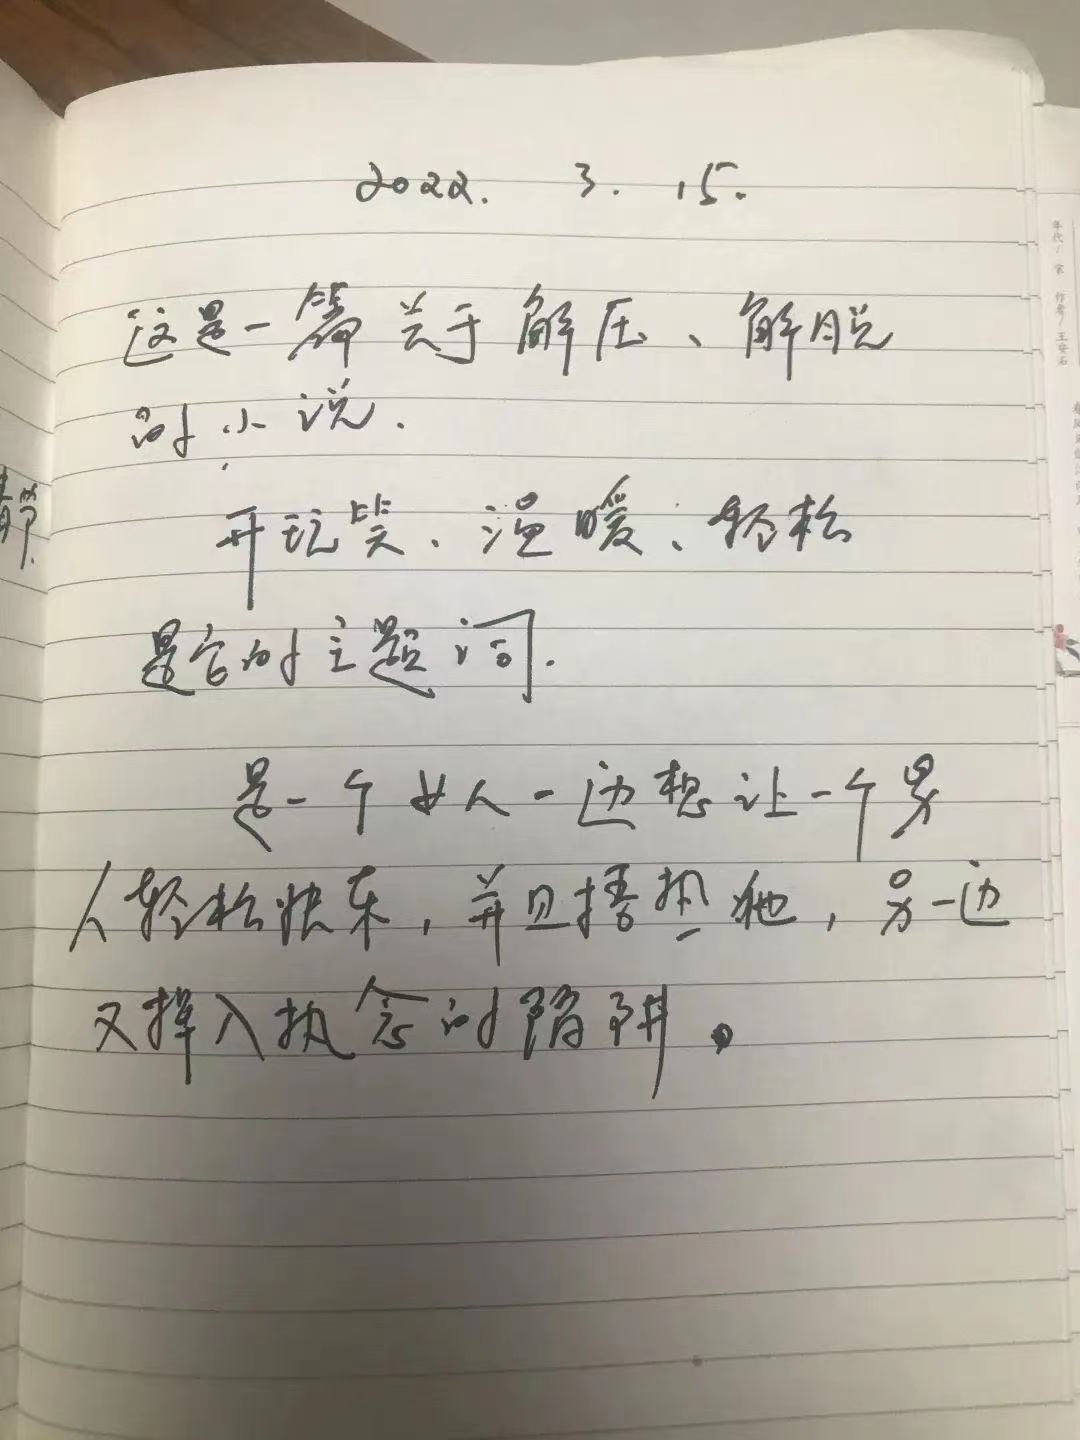 2022. 3. 15.
这是一篇关于解压、解脱
的小说.
开玩笑、温暖、轻松
是它的主题词.
是一个女人一边想让一个男
人轻松快乐，并且捂热他，另一边
又掉入执念的陷阱。
年代/宋 作者/王安石